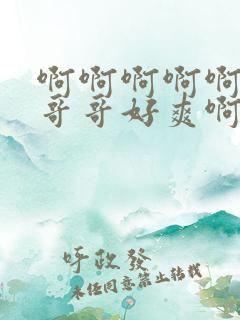 啊啊啊啊啊
哥哥好爽啊
呼政發
未经同意禁止转载